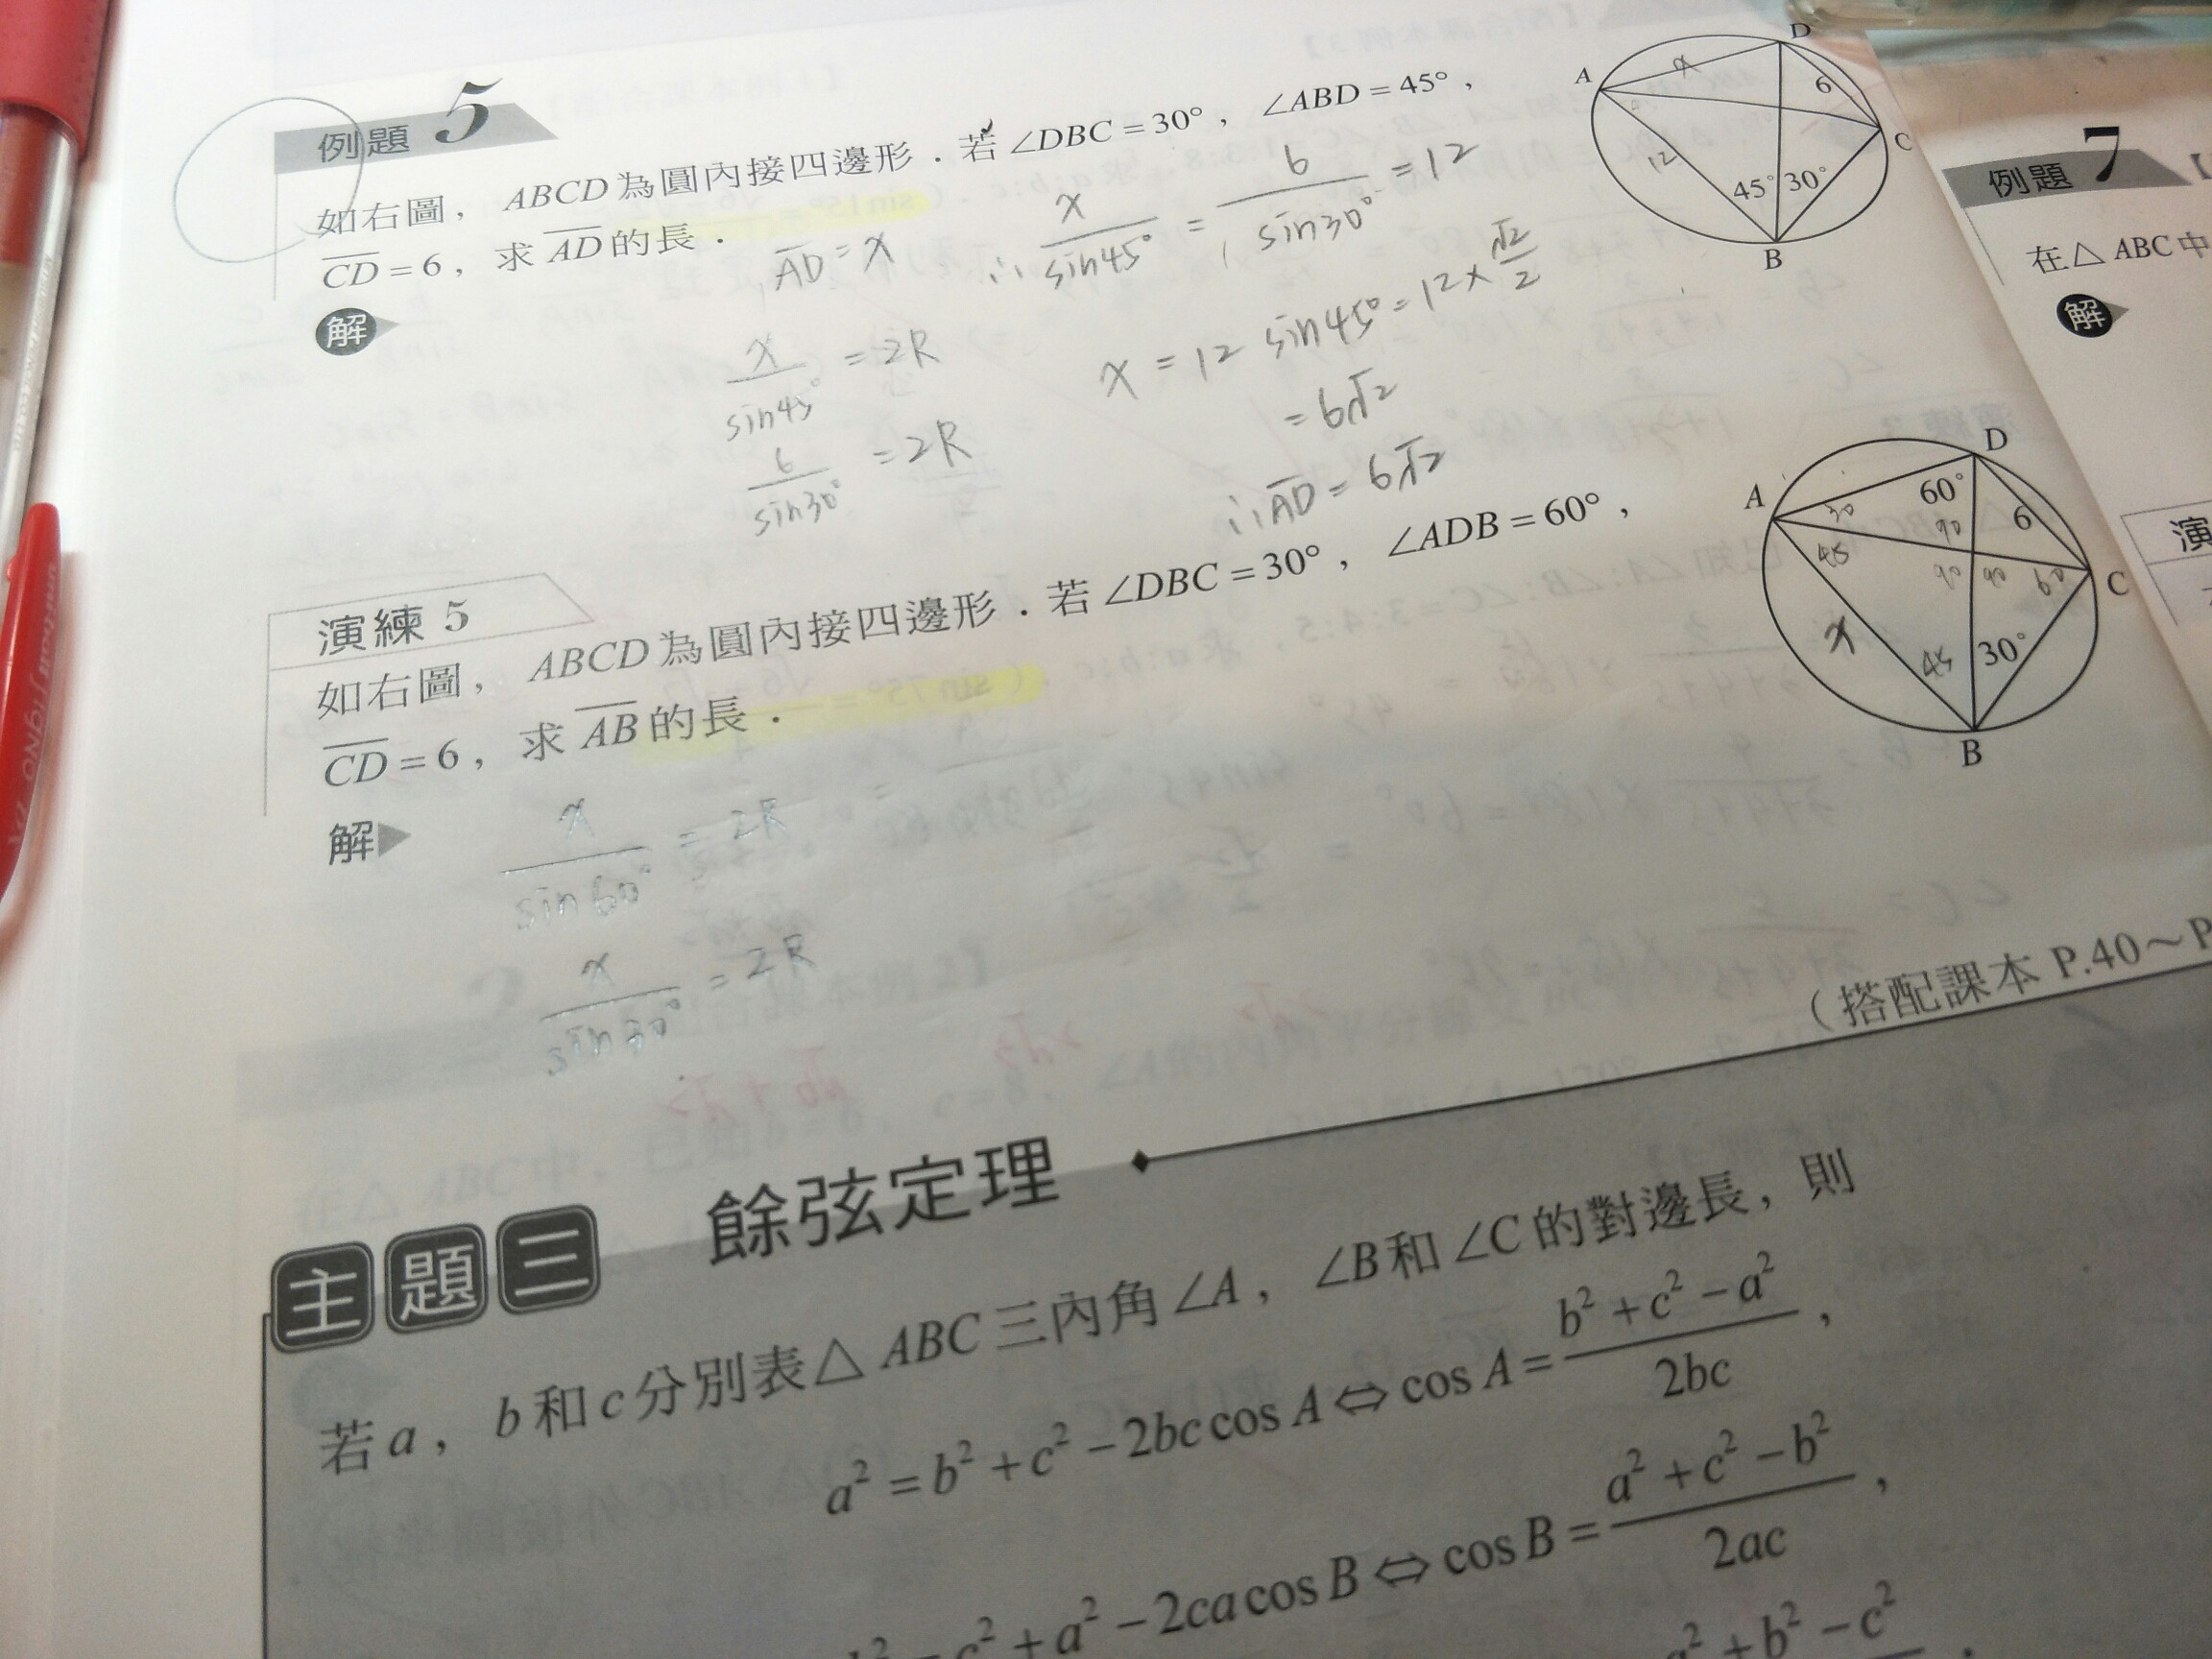 例題 5
如右圖，ABCD為圓內接四邊形．若∠DBC=30°，∠ABD=45°，
CD=6，求AD的長．
AD=x
∴ x/sin45° = 6/sin30° = 12
解
x/sin45° = 2R
6/sin30° = 2R
x = 12 sin45° = 12×√2/2
= 6√2
∴AD = 6√2
A
D
C
B
x
6
12
45°
30°
演練 5
如右圖，ABCD為圓內接四邊形．若∠DBC=30°，∠ADB=60°，
CD=6，求AB的長．
解
x/sin60° = 2R
x/sin30° = 2R
A
D
C
B
60°
6
30
90
45
90
90
60
x
45
30°
（搭配課本 P.40～P
主題三 餘弦定理
若a，b和c分別表△ABC三內角∠A，∠B和∠C的對邊長，則
a²=b²+c²−2bccosA⇔cosA=b²+c²−a²/2bc，
c²+a²−2cacosB⇔cosB=a²+c²−b²/2ac，
+b²−c²
例題 7
在△ABC中
解
演